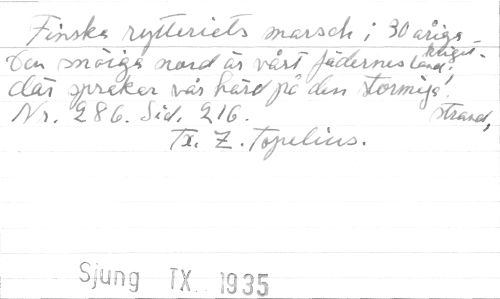 Finska rytteriets marsch i 30 åriga-
kriget.
Den snöiga nord är vårt fädernesland!
där sprakar vår härd på den stormiga
strand,
Nr. 286. Sid. 216.
Tx. Z. Topelius.
Sjung TX 1935